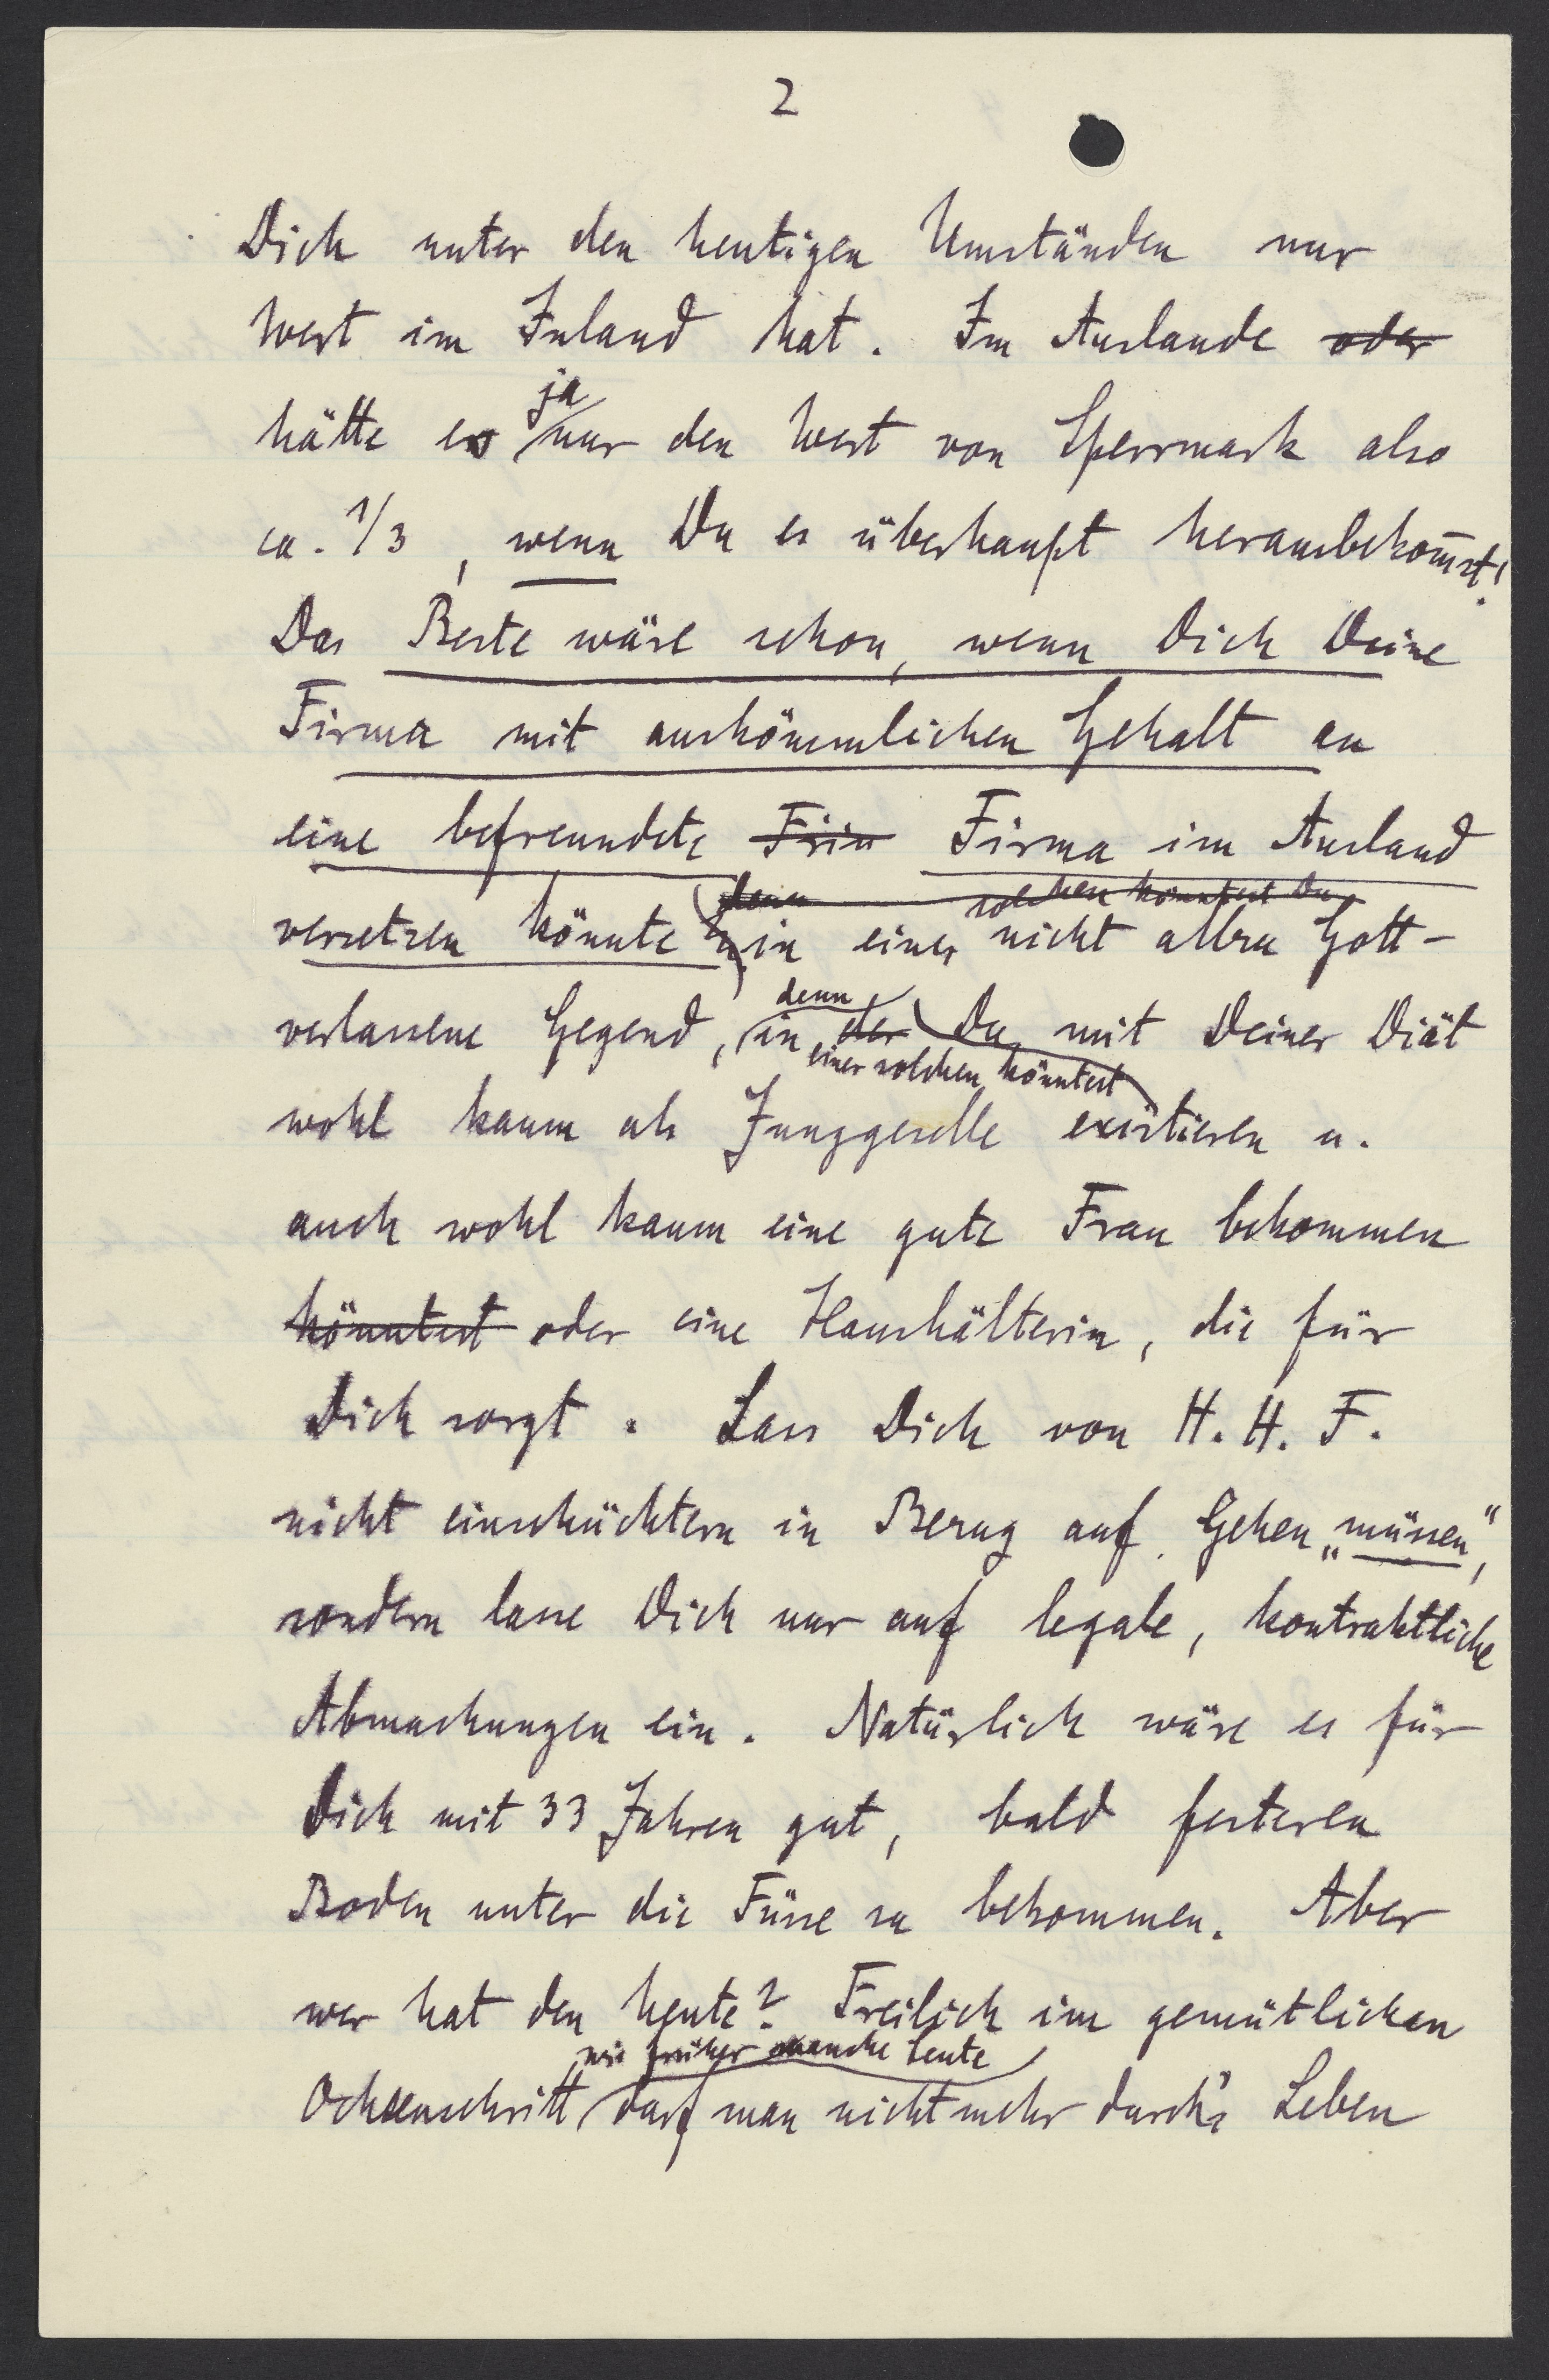 2
Dich unter den heutigen Umständen nur
Wert im Inland hat. Im Auslande oder
ja
hätte es nur den Wert von Sperrmark also
ca. 1/3, wenn Du es überhaupt herausbekom̄st!
Das Beste wäre schon, wenn Dich Deine
Firma mit auskömmlichen Gehalt an
eine befreundete Frin Firma im Ausland
denn solchen könntest Du
versetzen könnte in einer nicht allzu Gott-
denn
verlassene Gegend, in der Du mit Deiner Diät
einer solchen könntest
wohl kaum als Junggeselle existieren u.
auch wohl kaum eine gute Frau bekommen
könntest oder eine Haushälterin, die für
Dich sorgt. Lass Dich von H. H. F.
nicht einschüchtern in Bezug auf Gehen „müssen",
sondern lasse Dich nur auf legale, kontraktliche
Abmachungen ein. Natürlich wäre es für
Dich mit 33 Jahren gut, bald festeren
Boden unter die Füsse zu bekommen. Aber
wer hat den heute? Freilich im gemütlichen
wie früher manche Leute
Ochsenschritt darf man nicht mehr durch's Leben